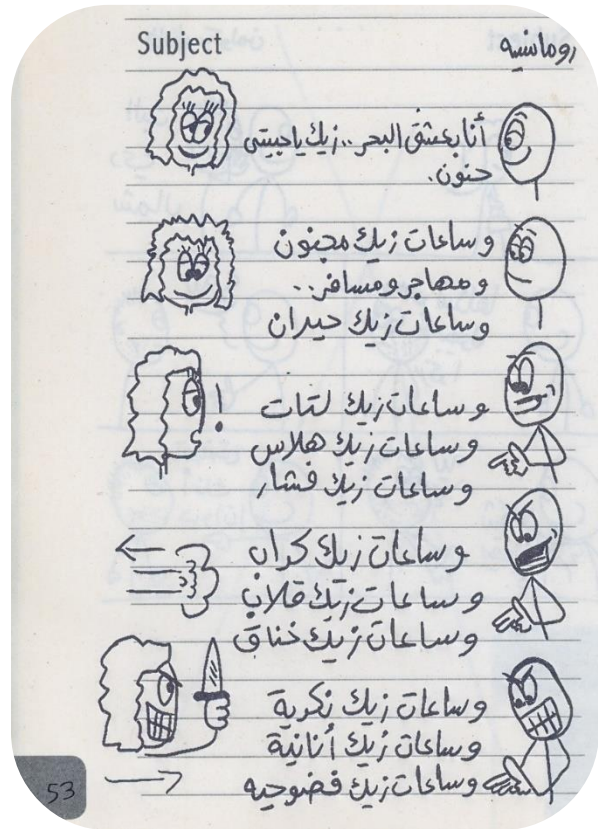 Subject
رومانسيه
أنا بعشق البحر.. زيك يا حبيبتي
حنون.
وساعات زيك مجنون
ومهاجر ومسافر..
وساعات زيك حيران
وساعات زيك لتات
وساعات زيك هلاس
وساعات زيك فشار
وساعات زيك كداب
وساعات زيك قلاب
وساعات زيك خناق
وساعات زيك نكدية
وساعات زيك أنانية
وساعات زيك فضوحيه
53